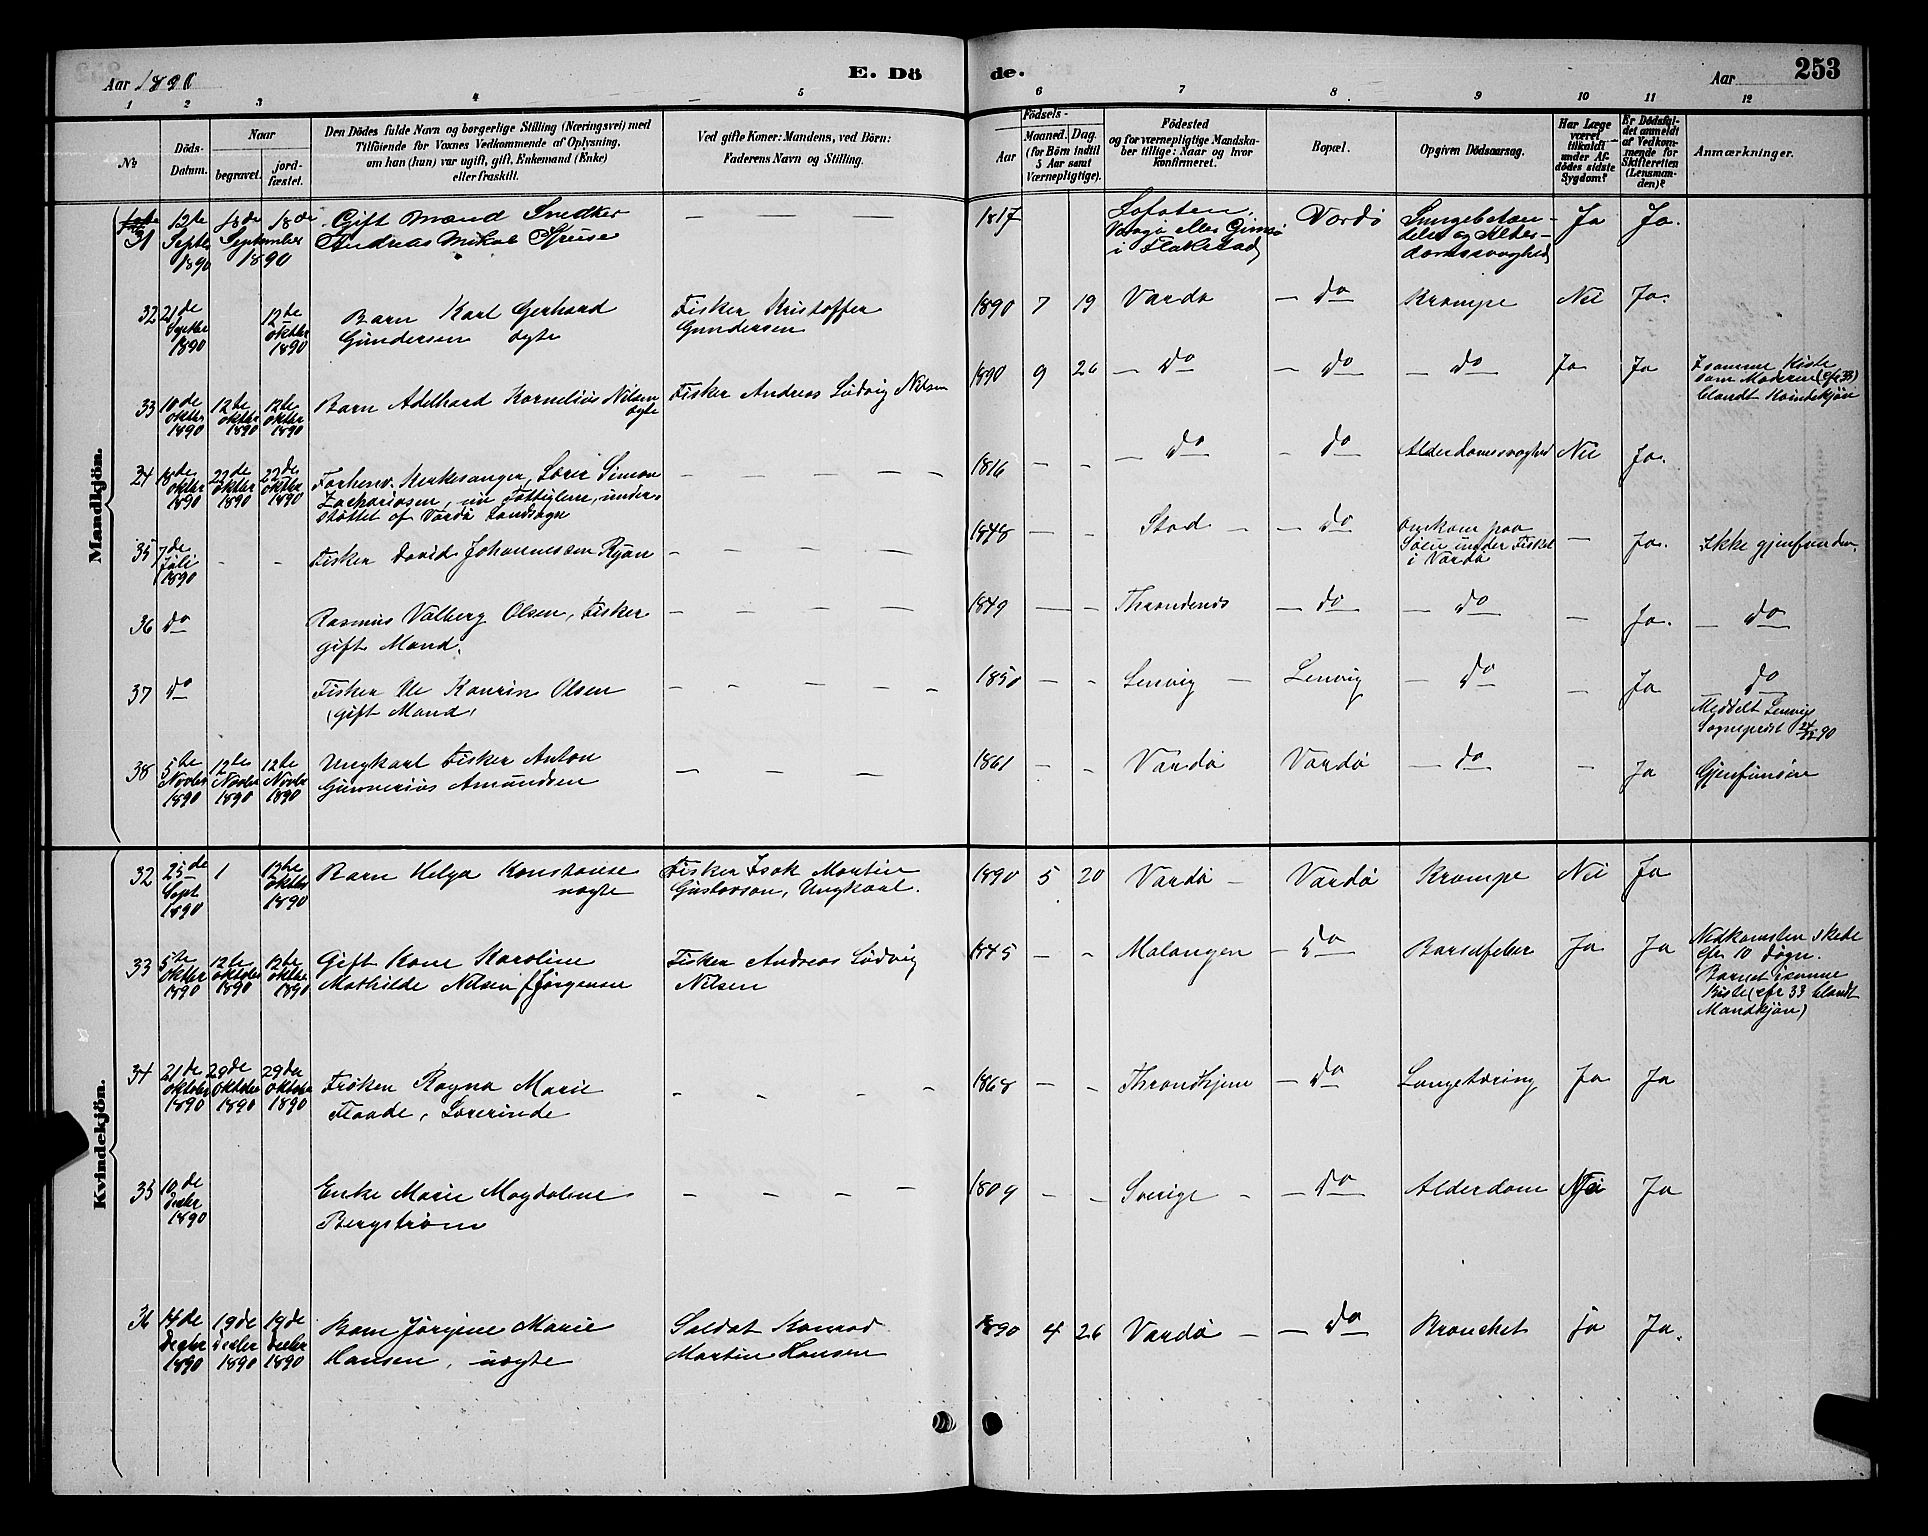 Aar 1890
E. Dö
de.
Aar
253
1 2 3 4 5 6 7 8 9 10 11 12
No
Döds-
Datum.
Naar
begravet.
jord-
fæstet.
Den Dödes fulde Navn og borgerlige Stilling (Næringsvei) med
Tilföiende for Voxnes Vedkommende af Oplysning,
om han (hun) var ugift, gift, Enkemand (Enke)
eller fraskilt.
Ved gifte Koner: Mandens, ved Börn:
Faderens Navn og Stilling.
Födsels-
Aar
Maaned. Dag.
(for Börn indtil
5 Aar samt
Værnepligtige).
Födested
og for værnepligtige Mandska-
ber tillige: Naar og hvor
konfirmeret.
Bopæl.
Opgiven Dödsaarsag.
Har Læge
været
tilkaldt
under Af-
dödes sidste
Sygdom?
Er Dödsfal-
det anmeldt
af Vedkom-
mende for
Skifteretten
(Lensman-
den)?
Anmærkninger.
Mandkjön.
31 12te Septr 1890 18de 18de September 1890 Gift Mand Snedker
Andreas Mikal
1817 Lofoten, eller Gimsø
i Flakstad
Vardø
Lungebetæn-
delse og Alder-
domssvaghed
Ja Ja.
32 21de Septbr 1890 12te Oktbr 1890 Barn Karl Gerhard
Gundersen ægte
Fisker Kristoffer
Gundersen
1890 7 19 Vardø — do — Krampe Nei Ja.
33 10de Oktbr 1890 12te Oktbr 1890 12te Oktbr 1890 Barn Adelhard Kornelius Nilsen
ægte
Fisker Andreas Lüdvig Nilsen
1890 9 26 — do — do — do Ja Ja
I samme Kiste
som Moderen (cfr 33)
blandt Kvindekjön
34 18de Oktbr 1890 22de Oktbr 1890 22de Oktbr 1890 Forhenv. Kirkesanger, Lærer Simon
Zachariasen, nu Fattiglem, under-
støttet af Vardø Landsogn
1816 — — do — do Alderdomssvaghed Nei Ja.
35 7de Jüli 1890 - - Fisker David Johannessen Ryan
1848 — - Stod — — do
Omkom paa
Søen under Fisket
i Vardø
— Ja. Ikke gjenfunden.
36 do Rasmus Valberg Olsen, Fisker
gift Mand.
1849 — - Throndenæs — do — do — Ja. — do
37 do Fisker Ole Olsen
(gift Mand)
1850 — - Lenvig — Lenvig — do — Ja do
Meddelt Lenvig
Sogneprest 90
38 5te Novbr 1890 12te Novbr 1890 12te Novbr 1890 Ungkarl Fisker Anton
Günnerius Amundsen
1861 — - Vardø Vardø — do — Ja Gjenfunden
Kvindekjön.
32 25de Sept 1890 1 12te Oktbr 1890 Barn Helga Konstanse
uægte
Fisker Isak Martin
Gustavson, Ungkarl.
1890 5 20 Vardø — Vardø Krampe Nei Ja
33 5te Oktbr 1890 12te Oktober 1890 12te Oktbr 1890 Gift Kone Karoline
Mathilde Nilsen f. Jørgensen
Fisker Andreas Lüdvig
Nilsen
1845 — - Malangen — do Barselfeber Ja Ja
Nedkomsten skede
cfr 10 døgn.
Barnet i samme
Kiste (cfr 33 blandt
Mandkjön)
34 21de Oktober 1890 29de Oktober 1890 29de Oktober 1890 Frøken Ragna Marie
Flaade, Lærerinde
1868 — - Throndhjem — do Lungetæring Ja Ja
35 10de Decbr 1890 Enke Marie Magdalene
Bergstrøm
1809 — - Sverige — — do Alderdom Nei Ja
36 14de Decbr 1890 19de Decbr 1890 19de Decbr 1890 Barn Jørgine Marie
Hansen, uægte
Soldat Konrad
Martin Hansen
1890 4 26 Vardø — — do Bronchit Ja Ja.